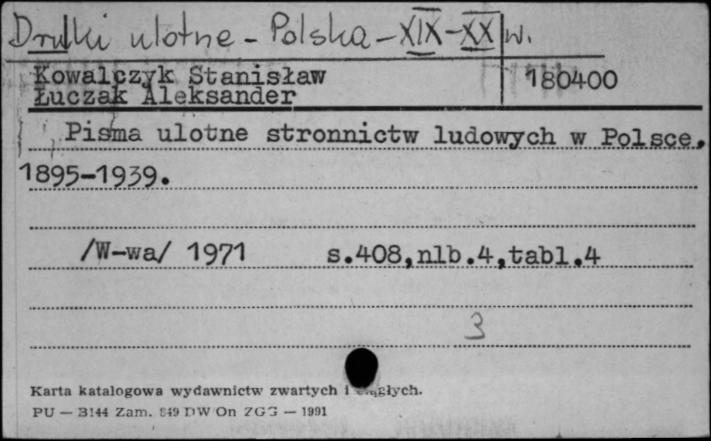 Druki ulotne - Polska - XIX-XX w.
Kowalczyk Stanisław 180400
Łuczak Aleksander
Pisma ulotne stronnictw ludowych w Polsce,
1895-1939.
/W-wa/ 1971 s.408,nlb.4,tabl.4
3
Karta katalogowa wydawnictw zwartych i
PU — B144 Zam. 849 DW On ZGG — 1991